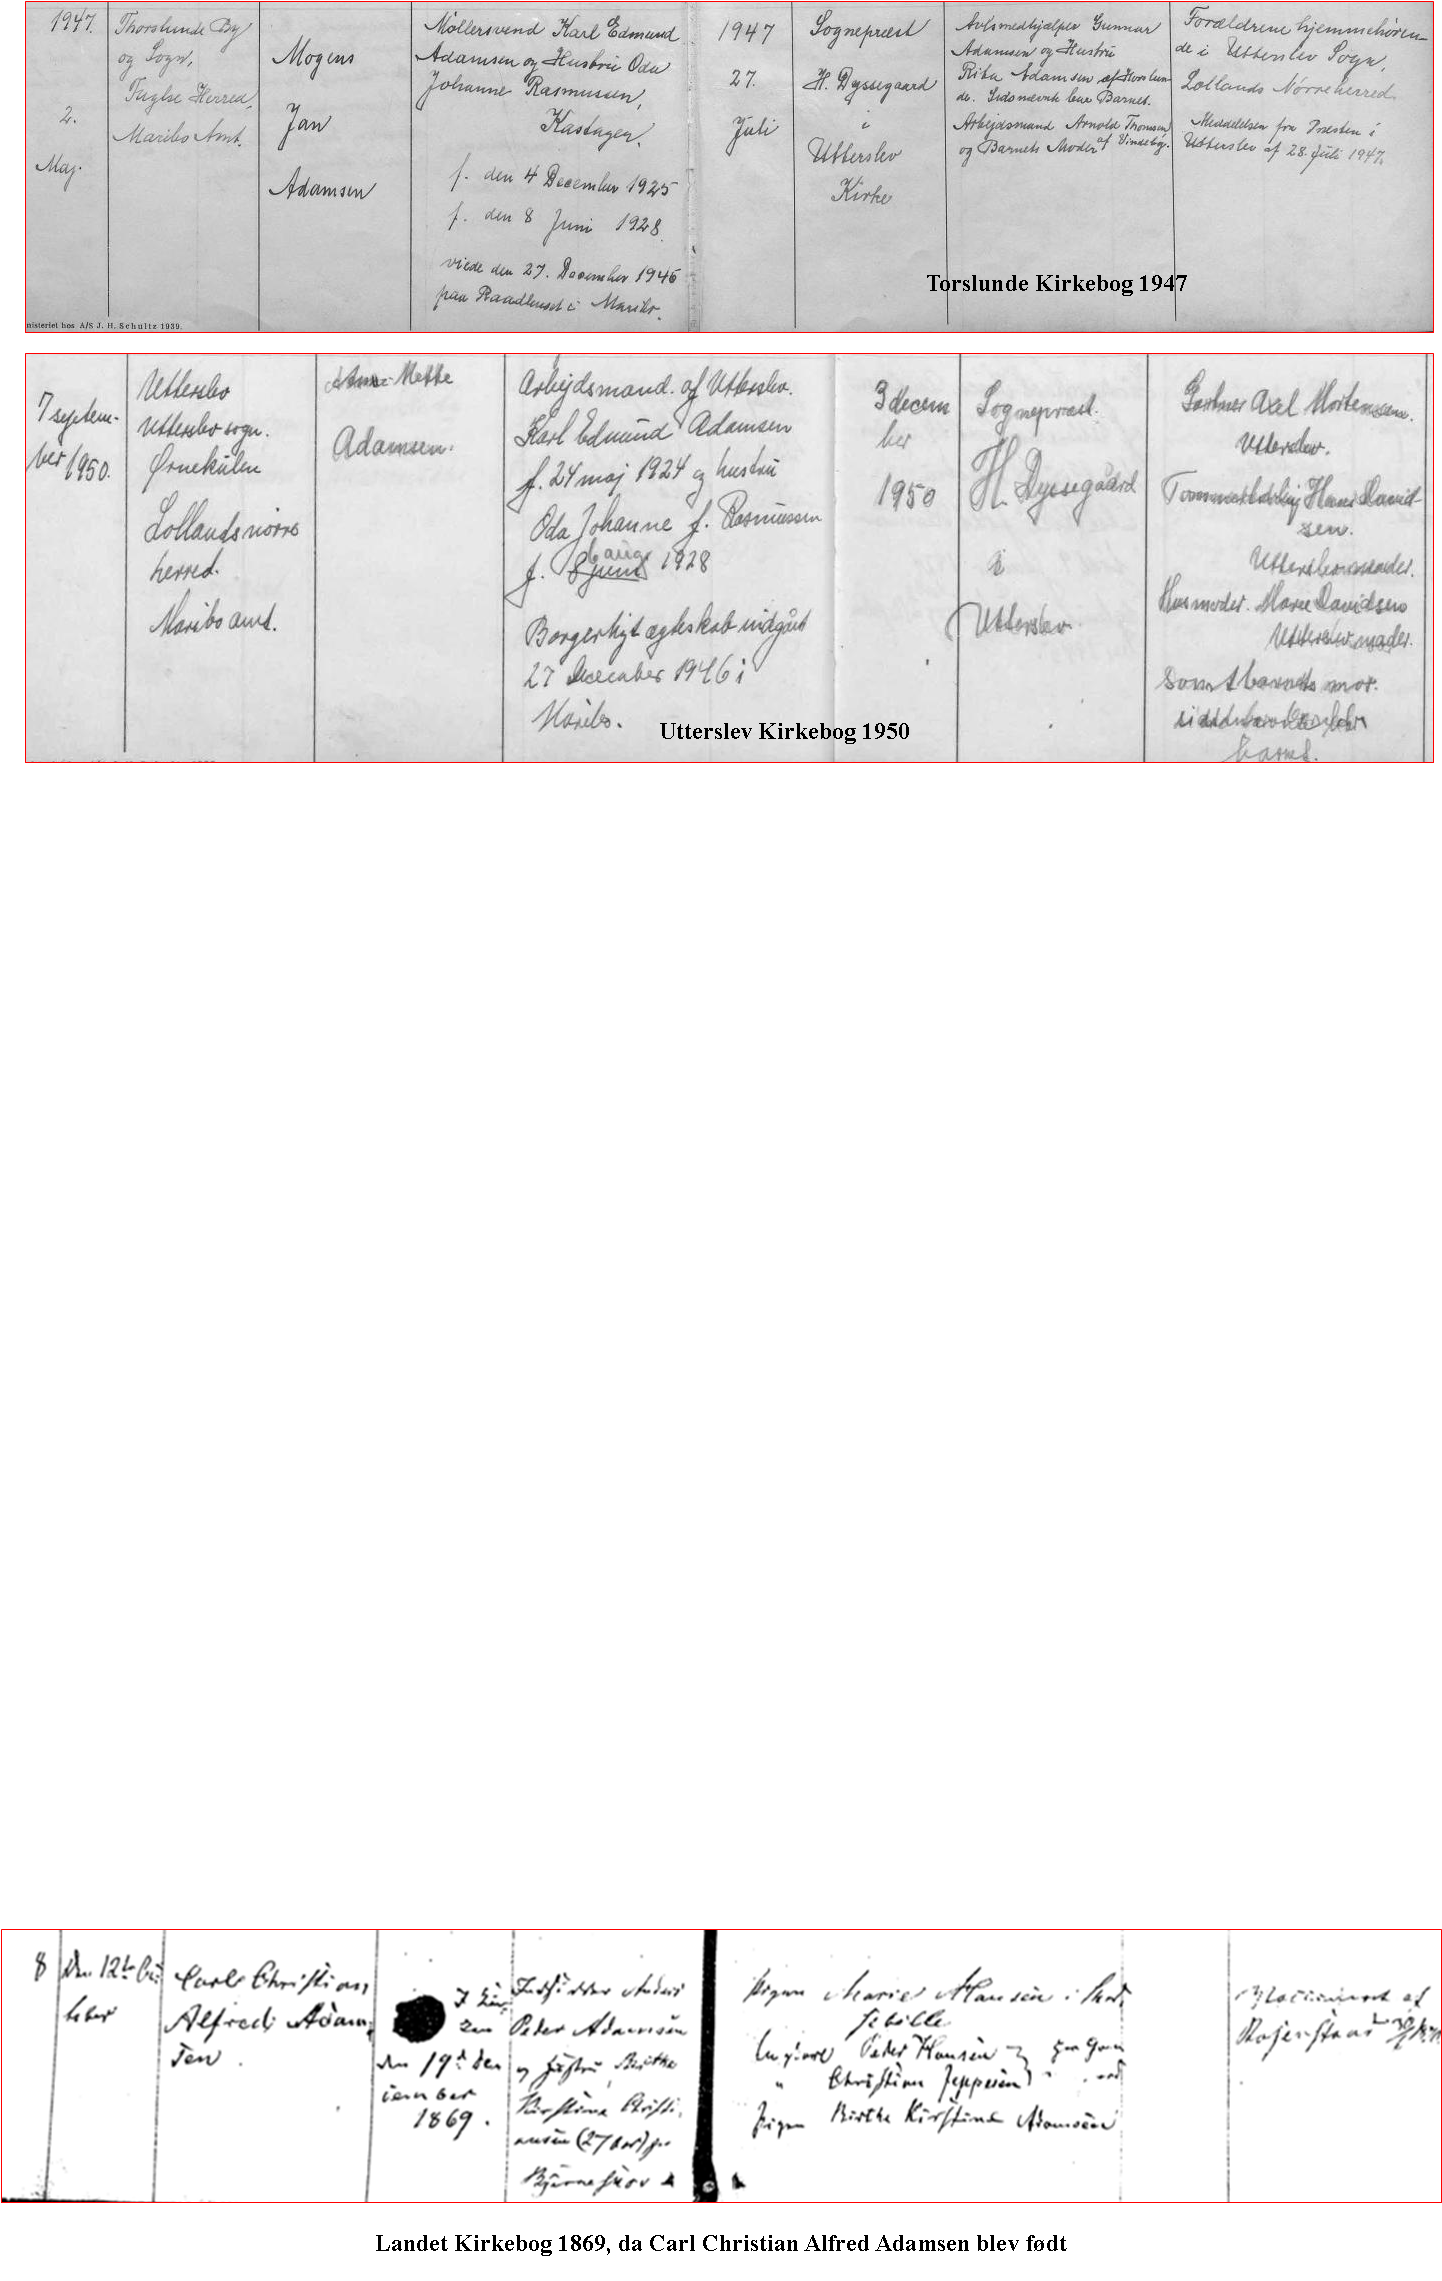 1947.
2.
Maj.
Thorslunde By
og Sogn,
Fuglse Herred,
Maribo Amt.
Mogens
Jan
Adamsen
Møllersvend Karl Edmund
Adamsen og Hustru Oda
Johanne Rasmussen,
Kastager.
f. den 4 December 1925
f. den 8 Juni 1928.
viede den 27. December 1946
paa Raadhuset i Maribo.
1947
27.
Juli
Sognepræst
H. Dyssegaard
i
Utterslev
Kirke
Avlsmedhjælper Gunnar
Adamsen og Hustru
Rita Adamsen af Thorslun-
de. Sidsnævnte bar Barnet.
Arbejdsmand Arnold Thomsen
og Barnets Moder af Vindeby.
Forældrene hjemmehøren-
de i Utterslev Sogn,
Lollands Nørreherred.
Meddelelsen fra Præsten i
Utterslev af 28. Juli 1947.
nisteriet hos A/S J. H. Schultz 1939.
Torslunde Kirkebog 1947
7 septem-
ber 1950.
Utterslev
Utterslev sogn.
Ørnekulen
Lollands nørre
herred.
Maribo amt.
Mette
Adamsen.
Arbejdsmand. af Utterslev.
Karl Edmund Adamsen
f. 24 maj 1924 og hustru
Oda Johanne f. Rasmussen
6 aug.
f. 8 juni 1928
Borgerligt ægteskab indgået
27 December 1946 i
Maribo.
3 decem
ber
1950
Sognepræst.
H. Dyssegaard
i
Utterslev
Gartner Axel Mortensen.
Utterslev.
Hans David-
sen.
Utterslev mader.
Husmoder. Marie Davidsen
Utterslev mader.
Samt barnets mor.
barnet.
Utterslev Kirkebog 1950
8
Den 12te Oc
tober
Carl Christian
Alfred Adam
sen.
den 19de De
cember
1869.
Indsidder Anders
Peder Adamsen
og Hustru Birthe
Kirstine Christi
ansen (27 Aar) fra
Bjørneskov
Pigen Marie Hansen i
Peder Hansen
" Christian Jeppesen
Pigen Birthe Kirstine Adamsen
af
Landet Kirkebog 1869, da Carl Christian Alfred Adamsen blev født